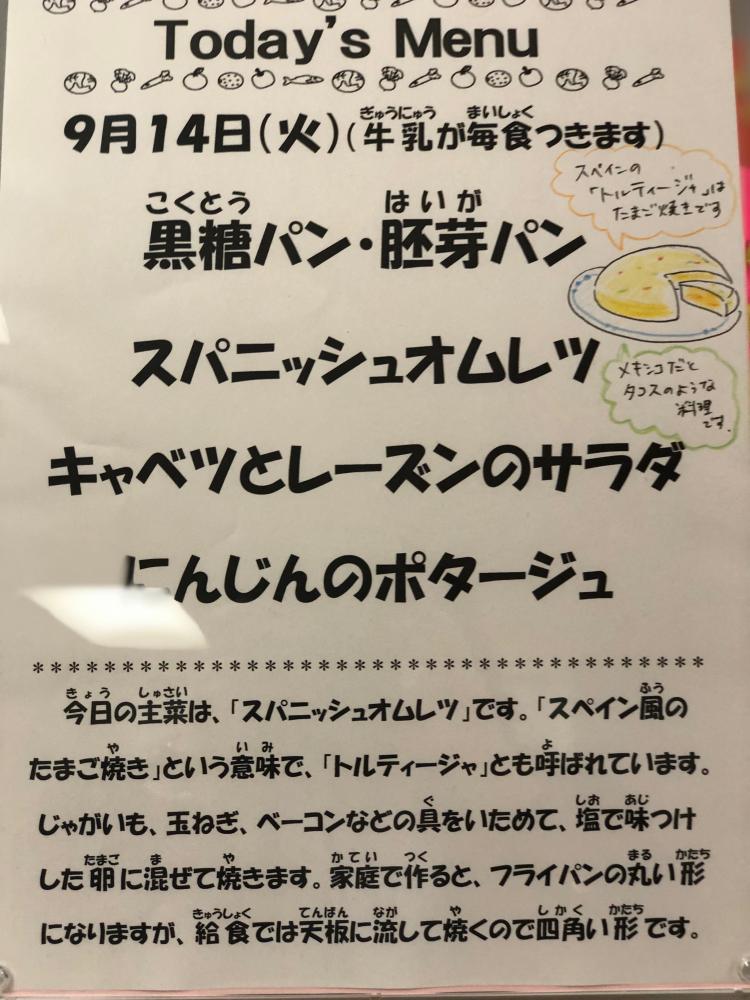 Today's Menu
9月14日(火)(牛乳が毎食つきます)
ぎゅうにゅう まいしょく
スペインの
「トルティージャ」は
たまご焼きです
こくとう はいが
黒糖パン・胚芽パン
スパニッシュオムレツ
メキシコだと
タコスのような
料理
です。
キャベツとレーズンのサラダ
にんじんのポタージュ
*******************************************
きょう しゅさい ふう
今日の主菜は、「スパニッシュオムレツ」です。「スペイン風の
や いみ よ
たまご焼き」という意味で、「トルティージャ」とも呼ばれています。
ぐ しお あじ
じゃがいも、玉ねぎ、ベーコンなどの具をいためて、塩で味つけ
たまご ま や かてい つく まる かたち
した卵に混ぜて焼きます。家庭で作ると、フライパンの丸い形
きゅうしょく てんぱん なが や しかく かたち
になりますが、給食では天板に流して焼くので四角い形です。